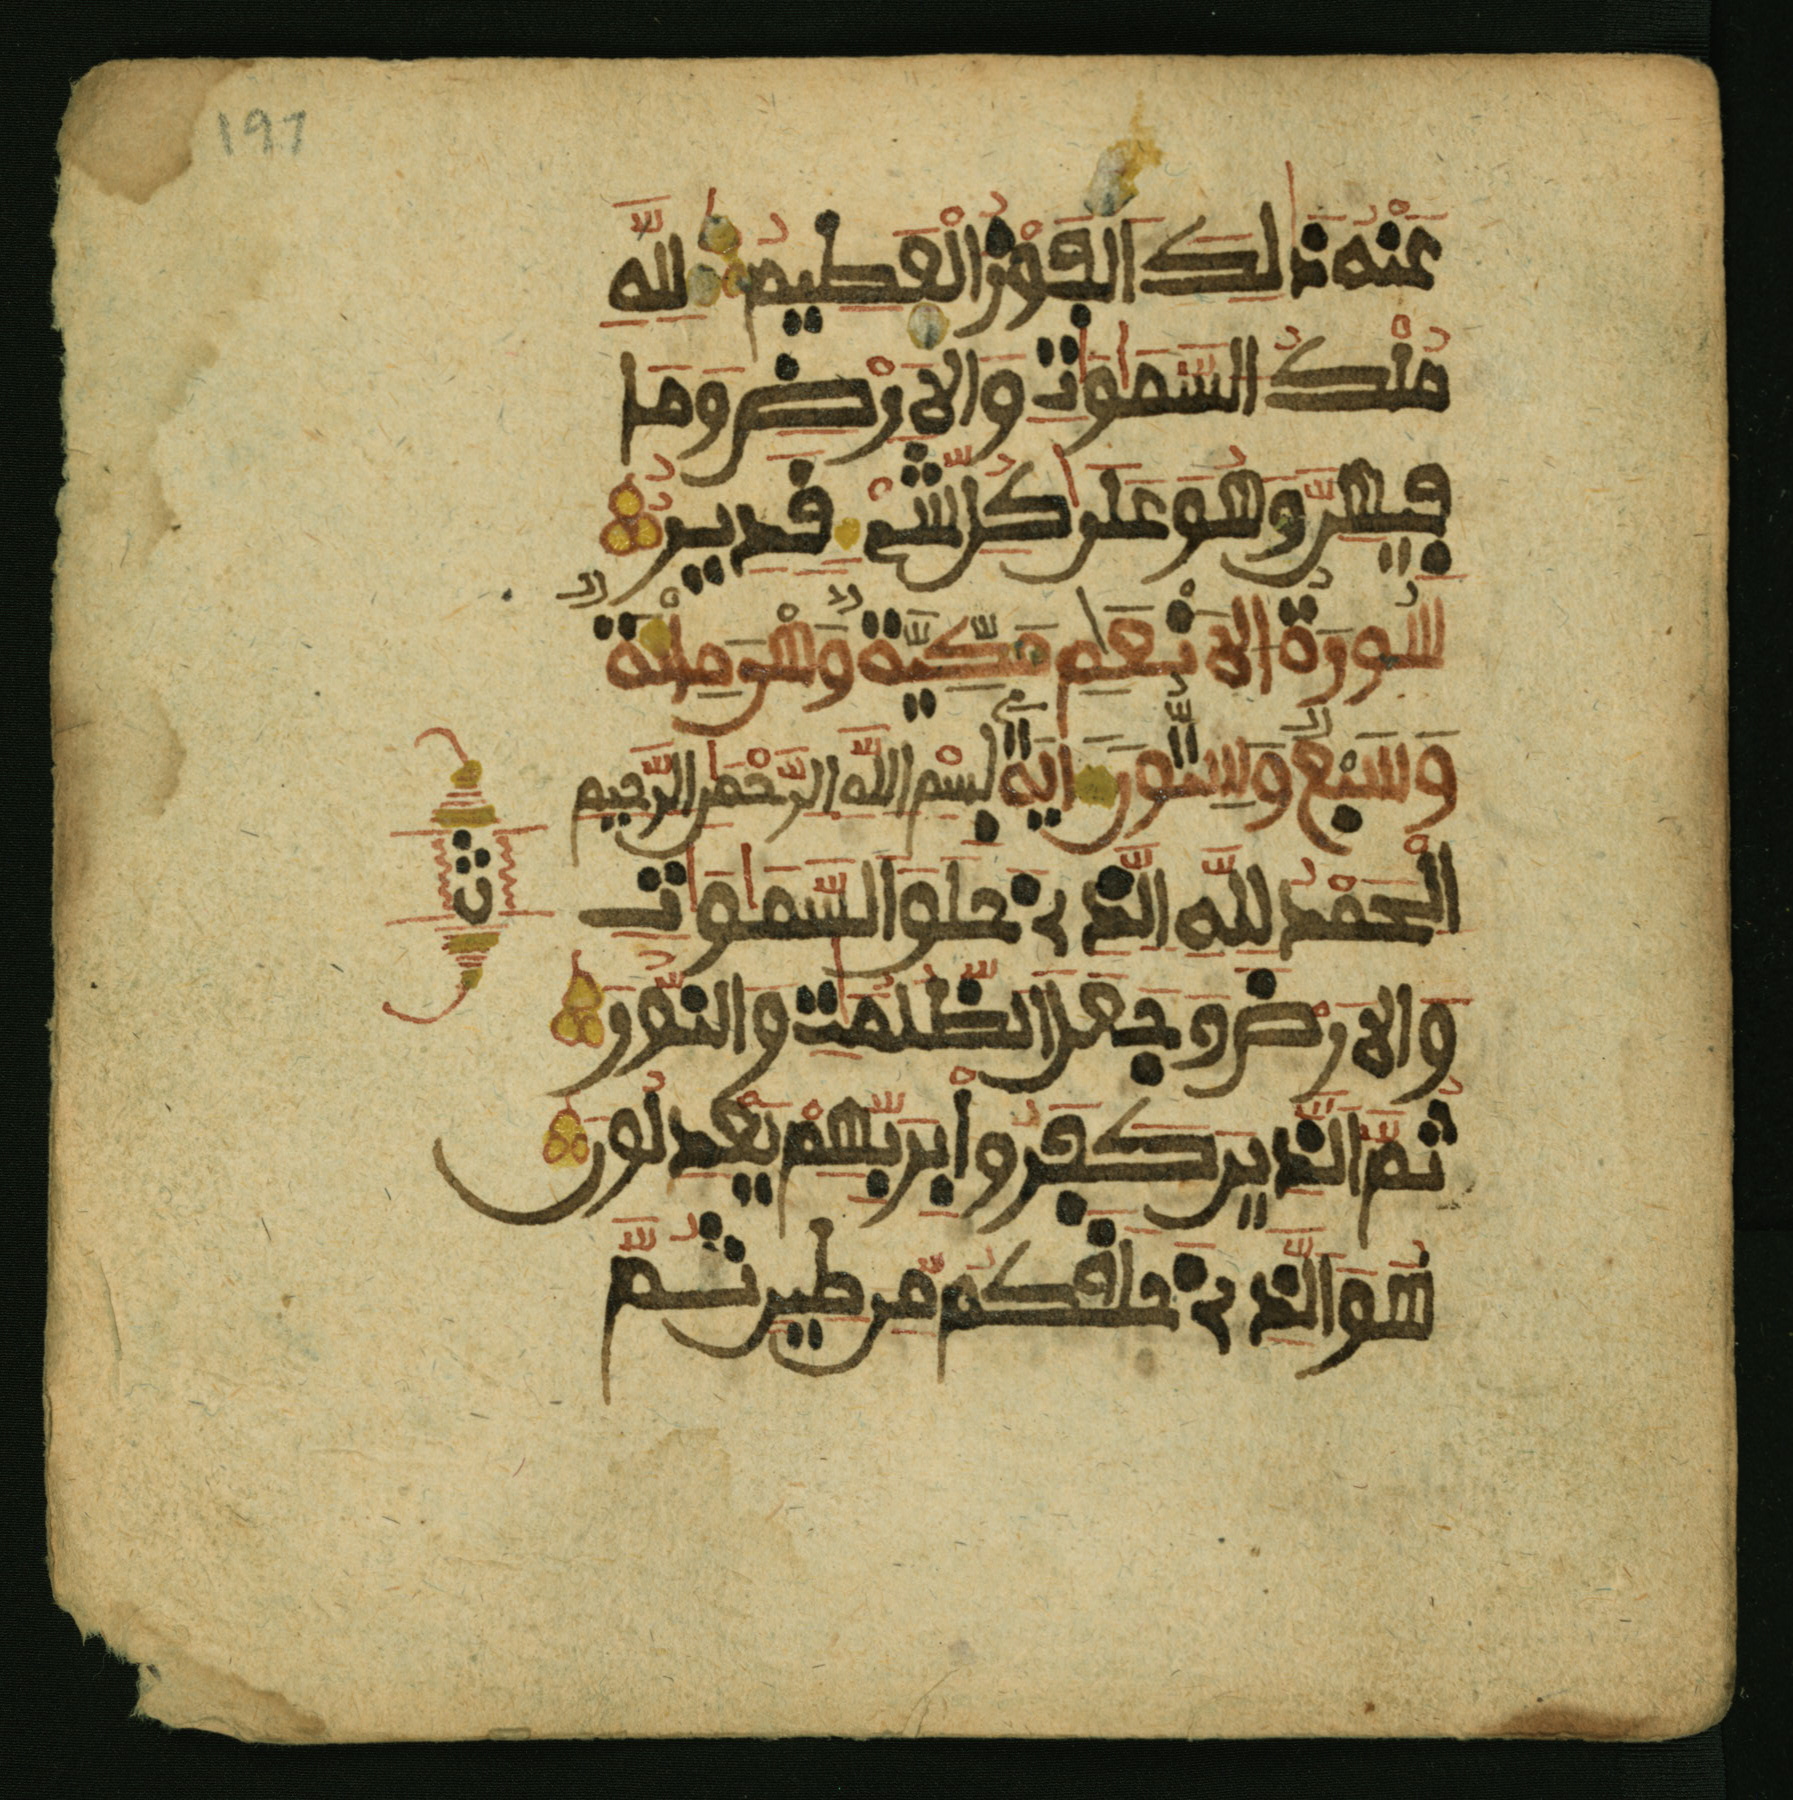 197
عَنْهُ ذَٰلِكَ ٱلْفَوْزُ ٱلْعَظِيمُ لِلَّهِ
مُلْكُ ٱلسَّمَٰوَٰتِ وَٱلْأَرْضِ وَمَا
فِيهِنَّ وَهُوَ عَلَىٰ كُلِّ شَےْءٍ قَدِيرٌ
سُورَةُ الأَنْعَٰمِ مَكِّيَّةٌ وَهْىَ مِائَةٌ
وَسَبْعٌ وَسِتُّونَ ءَايَةً بِسْمِ ٱللَّهِ ٱلرَّحْمَٰنِ ٱلرَّحِيمِ
ٱلْحَمْدُ لِلَّهِ ٱلَّذِے خَلَقَ ٱلسَّمَٰوَٰتِ
ث
وَٱلْأَرْضَ وَجَعَلَ ٱلظُّلُمَٰتِ وَٱلنُّورَ
ثُمَّ ٱلَّذِينَ كَفَرُوا۟ بِرَبِّهِمْ يَعْدِلُونَ
هُوَ ٱلَّذِے خَلَقَكُم مِّن طِينٍ ثُمَّ